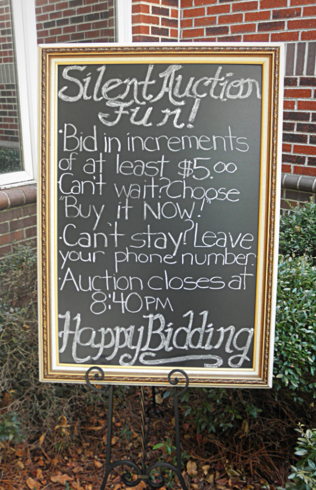 Silent Auction
Fun!
·Bid in increments
of at least $5.00
·Can't wait? Choose
"Buy it NOW!"
·Can't stay? Leave
your phone number.
·Auction closes at
8:40PM
Happy Bidding